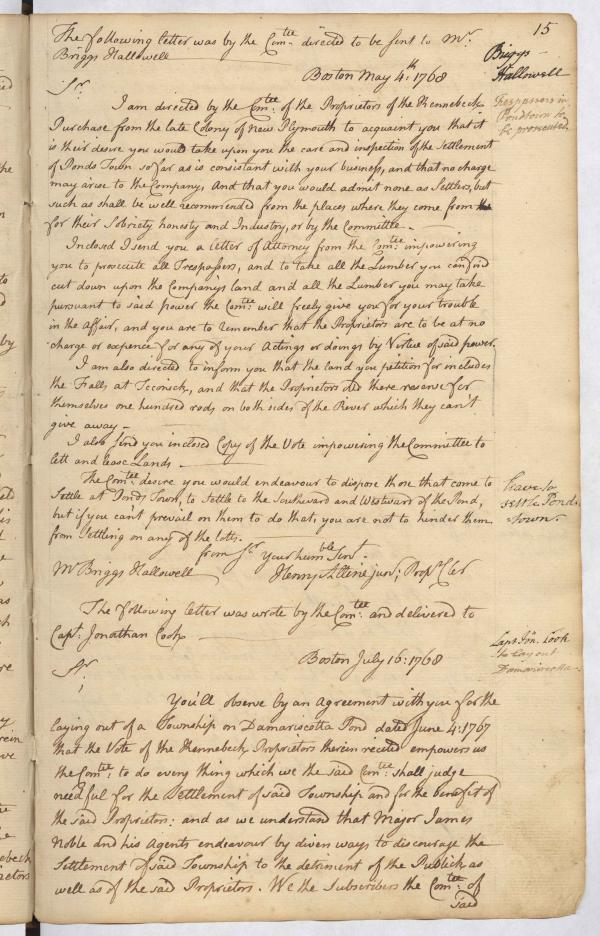 15
The following letter was by the Comtee directed to be sent to Mr.
Briggs Hallowell
Briggs
Hallowell
Boston May 4th: 1768
Sr.
Trespassers in
Pondtown to
be prosecuted.
I am directed by the Comtee: of the Proprietors of the Kennebeck
Purchase from the late Colony of New Plymouth to acquaint you that it
is their desire you would take upon you the care and inspection of the Settlement
of Ponds Town so far as is consistant with your business, and that no charge
may arise to the Company, And that you would admit none as Settlers, but
such as shall be well recommended from the places where they come from
for their Sobriety honesty and Industry, or by the Committee. -
Inclosed I send you a letter of Attorney from the Comtee: impowering
you to prosecute all Trespassers, and to take all the Lumber you can find
cut down upon the Companys land and all the Lumber you may take
pursuant to said power the Comtee: will freely give you for your trouble
in the Affair, and you are to remember that the Proprietors are to be at no
charge or expence for any of your Actings or doings by Virtue of said power.
I am also directed to inform you that the land you petition for includes
the Falls at Teconick, and that the Proprietors did there reserve for
themselves one hundred rods on both sides of the River which they can't
give away -
I also send you inclosed Copy of the Vote impowering the Committee to
lett and lease Lands. -
The Comtee: desire you would endeavour to dispose those that come to
Settle at Ponds Town, to Settle to the Southward and Westward of the Pond,
but if you can't prevail on them to do that, you are not to hinder them
from Settling on any of the lotts.
Leave to
settle Ponds
town.
from Sr. Your humble Servt.
Mr Briggs Hallowell Henry Alline junr; Proprs Cler
The following letter was wrote by the Comtee: and delivered to
Capt. Jonathan Cook
Capt. Jon. Cook
to lay out
Damariscotta.
Boston July 16: 1768
Sr.
You'll observe by an Agreement with you for the
laying out of a Township on Damariscotta Pond dated June 4: 1767
that the Vote of the Kennebeck Proprietors therein recited empowers us
the Comtee: to do every thing which we the said Comtee: shall judge
needful for the Settlement of said Township and for the benefit of
the said Proprietors: and as we understand that Major James
Noble and his Agents endeavour by divers ways to discourage the
Settlement of said Township to the detriment of the Publick as
well as of the said Proprietors. We the Subscribers the Comtee: of
said